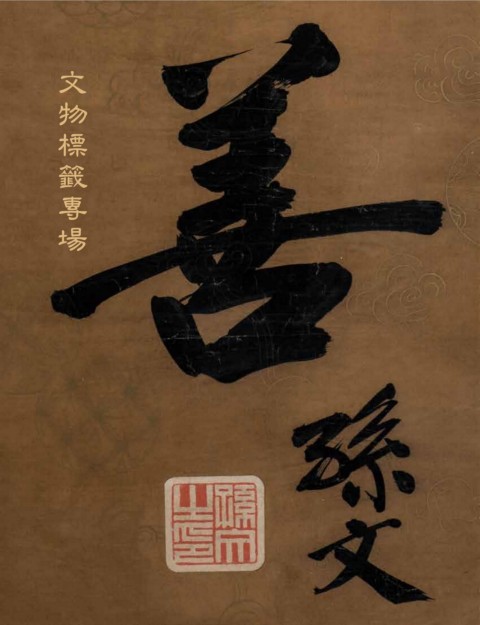 文物標籤專場
善
孫文
孫文之印